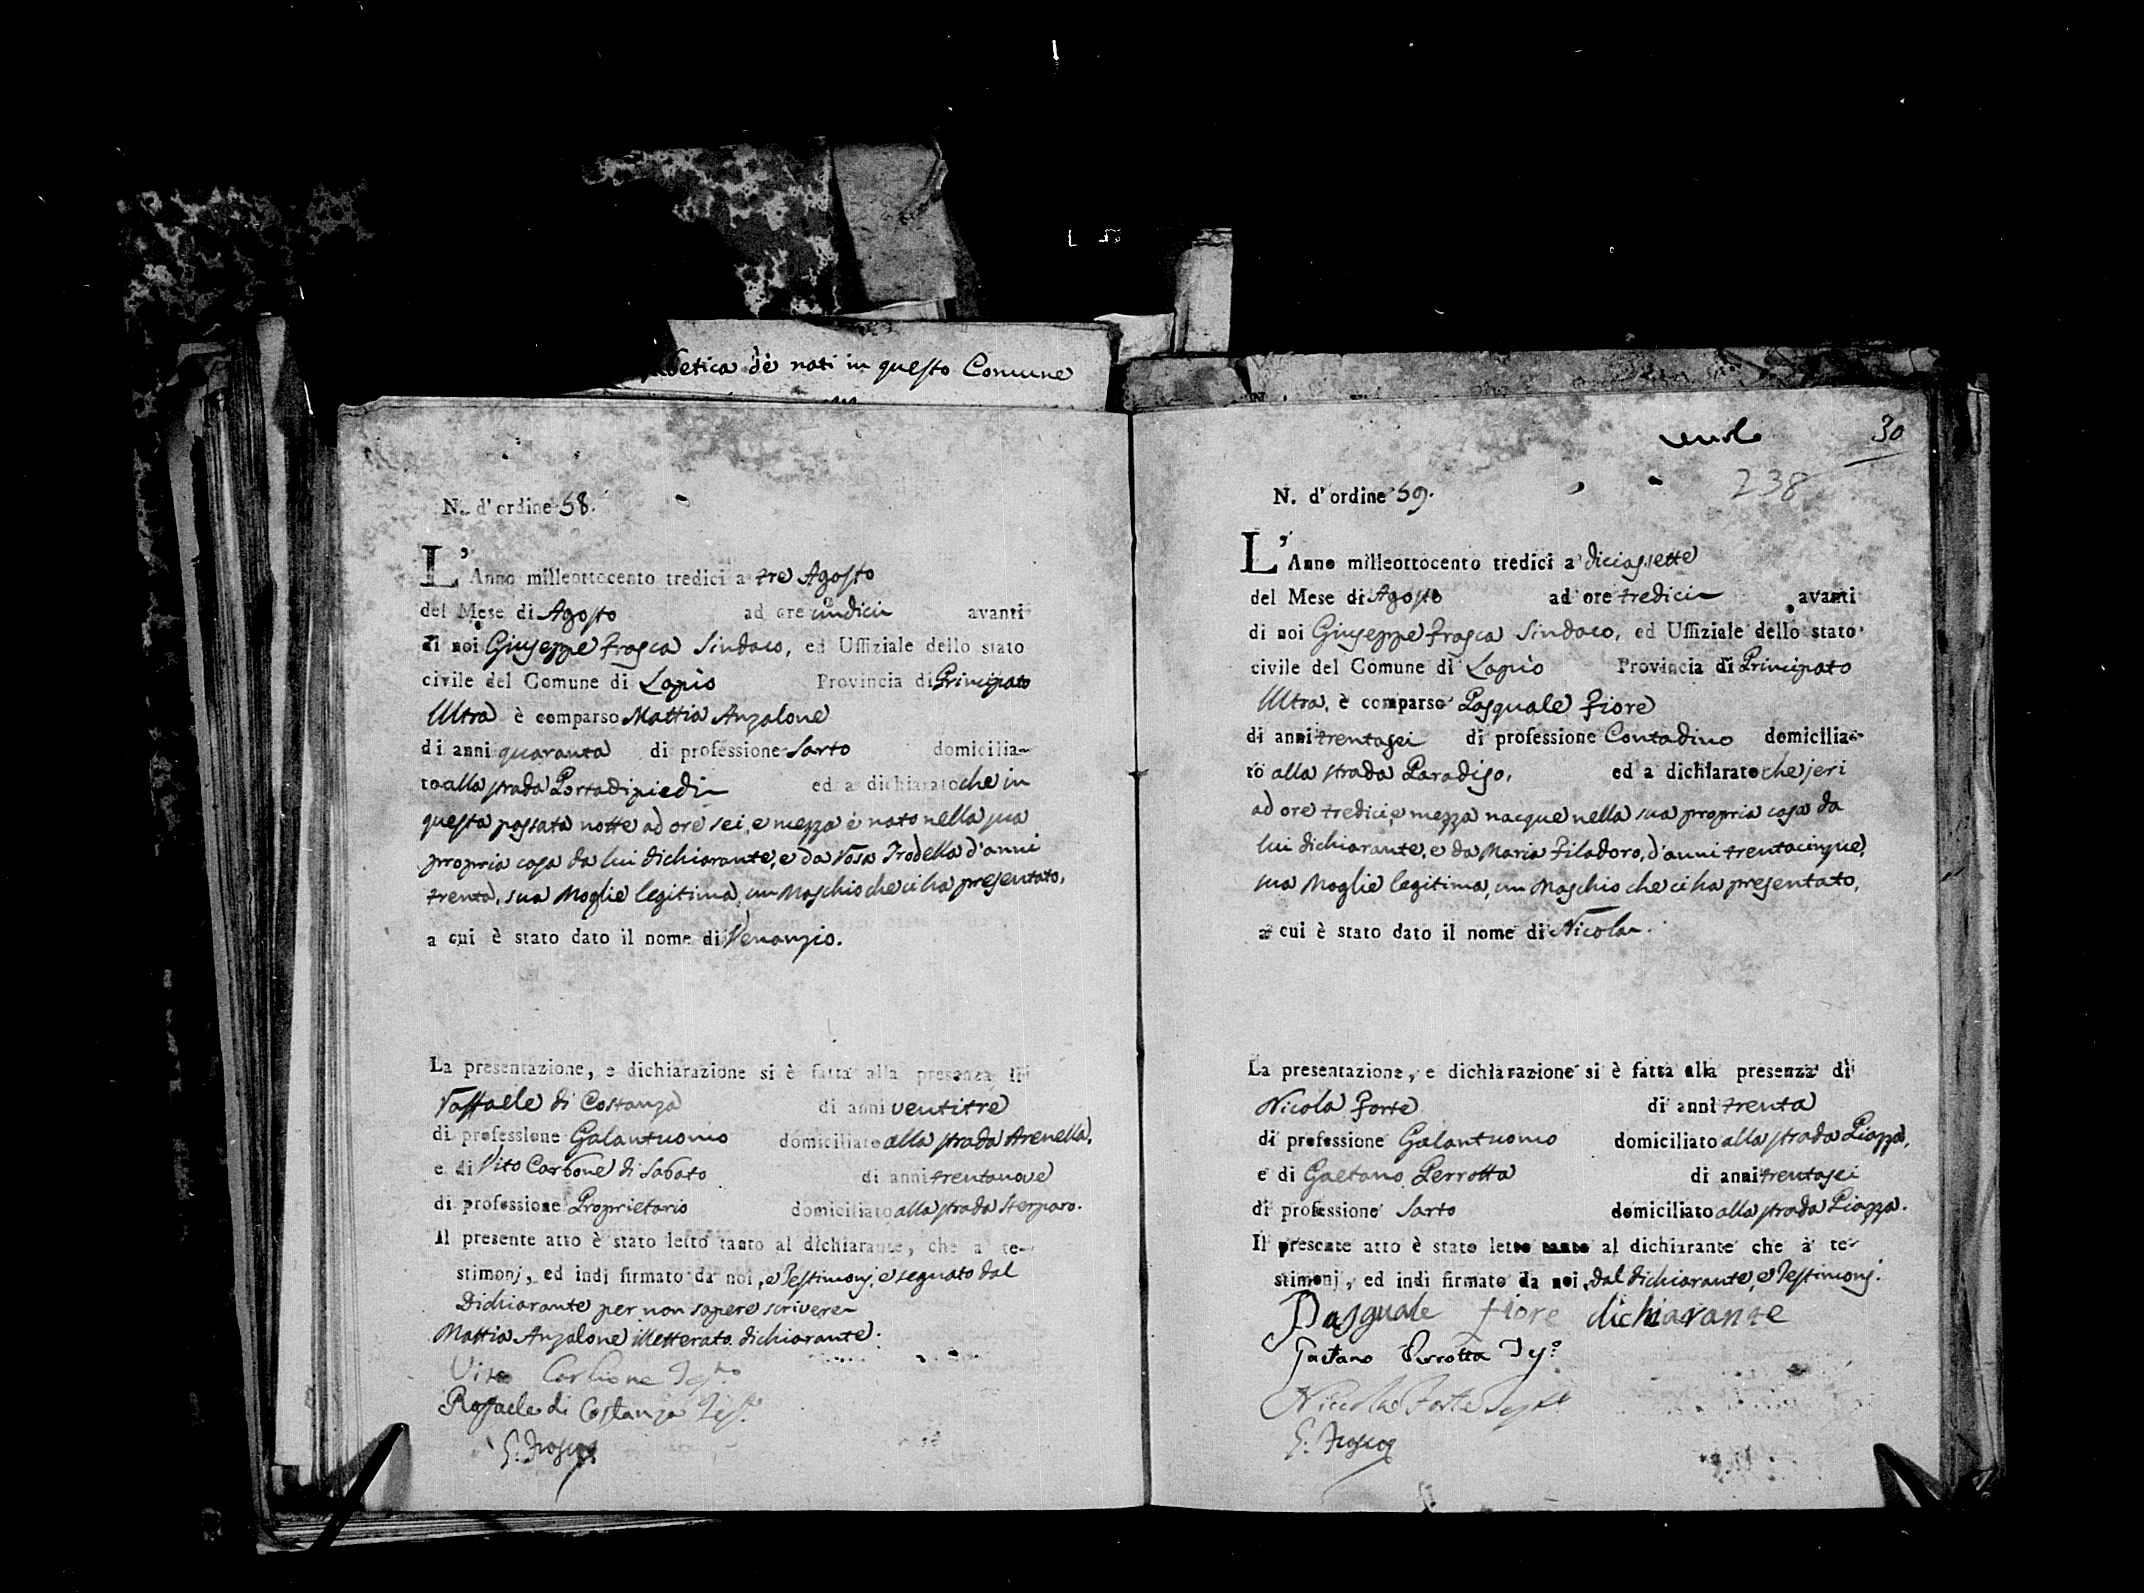 betica de nati in questo Comune
N. d'ordine 58.
L'Anno milleottocento tredici a tre Agosto
del Mese di Agosto ad ore undici avanti
di noi Giuseppe Frasca Sindaco, ed Uffiziale dello stato
civile del Comune di Lapio Provincia di Principato
Ultra è comparso Mattia Anzalone
di anni quaranta di professione Sarto domicilia-
to alla strada Portadipiedi ed a dichiarato che in
questa passata notte ad ore sei, e mezza è nato nella sua
propria casa da lui dichiarante, e da Rosa Trodella d'anni
trenta, sua Moglie legitima, un Maschio che ci ha presentato,
a cui è stato dato il nome di Venanzio.
La presentazione, e dichiarazione si è fatta alla presenza di
Raffaele di Costanza di anni ventitre
di professione Galantuomo domiciliato alla strada Arenella,
e di Vito Carbone di Sabato di anni trentanove
di professione Proprietario domiciliato alla strada Sterparo.
Il presente atto è stato letto tanto al dichiarante, che a te-
stimonj, ed indi firmato da noi, e Testimonj, e segnato dal
Dichiarante per non sapere scrivere
Mattia Anzalone illetterato dichiarante.
Vito Carbone
Raffaele di Costanza Test.
G. Frasca
30
238
N. d'ordine 59.
L'Anno milleottocento tredici a diciassette
del Mese di Agosto ad ore tredici avanti
di noi Giuseppe Frasca Sindaco, ed Uffiziale dello stato
civile del Comune di Lapio Provincia di Principato
Ultra, è comparso Pasquale Fiore
di anni trentasei di professione Contadino domicilia-
to alla strada Paradiso, ed a dichiarato che jeri
ad ore tredici, e mezza nacque nella sua propria casa da
lui dichiarante, e da Maria Filadoro, d'anni trentacinque,
sua Moglie legitima, un Maschio che ci ha presentato,
a cui è stato dato il nome di Nicola.
La presentazione, e dichiarazione si è fatta alla presenza di
Nicola Forte di anni trenta
di professione Galantuomo domiciliato alla strada Piazza,
e di Gaetano Perrotta di anni trentasei
di professione Sarto domiciliato alla strada Piazza.
Il presente atto è stato letto tanto al dichiarante che a te-
stimonj, ed indi firmato da noi, dal dichiarante, e Testimonj.
Pasquale fiore dichiarante
Gaetano Perrotta
Niccola Forte
G. Frasca